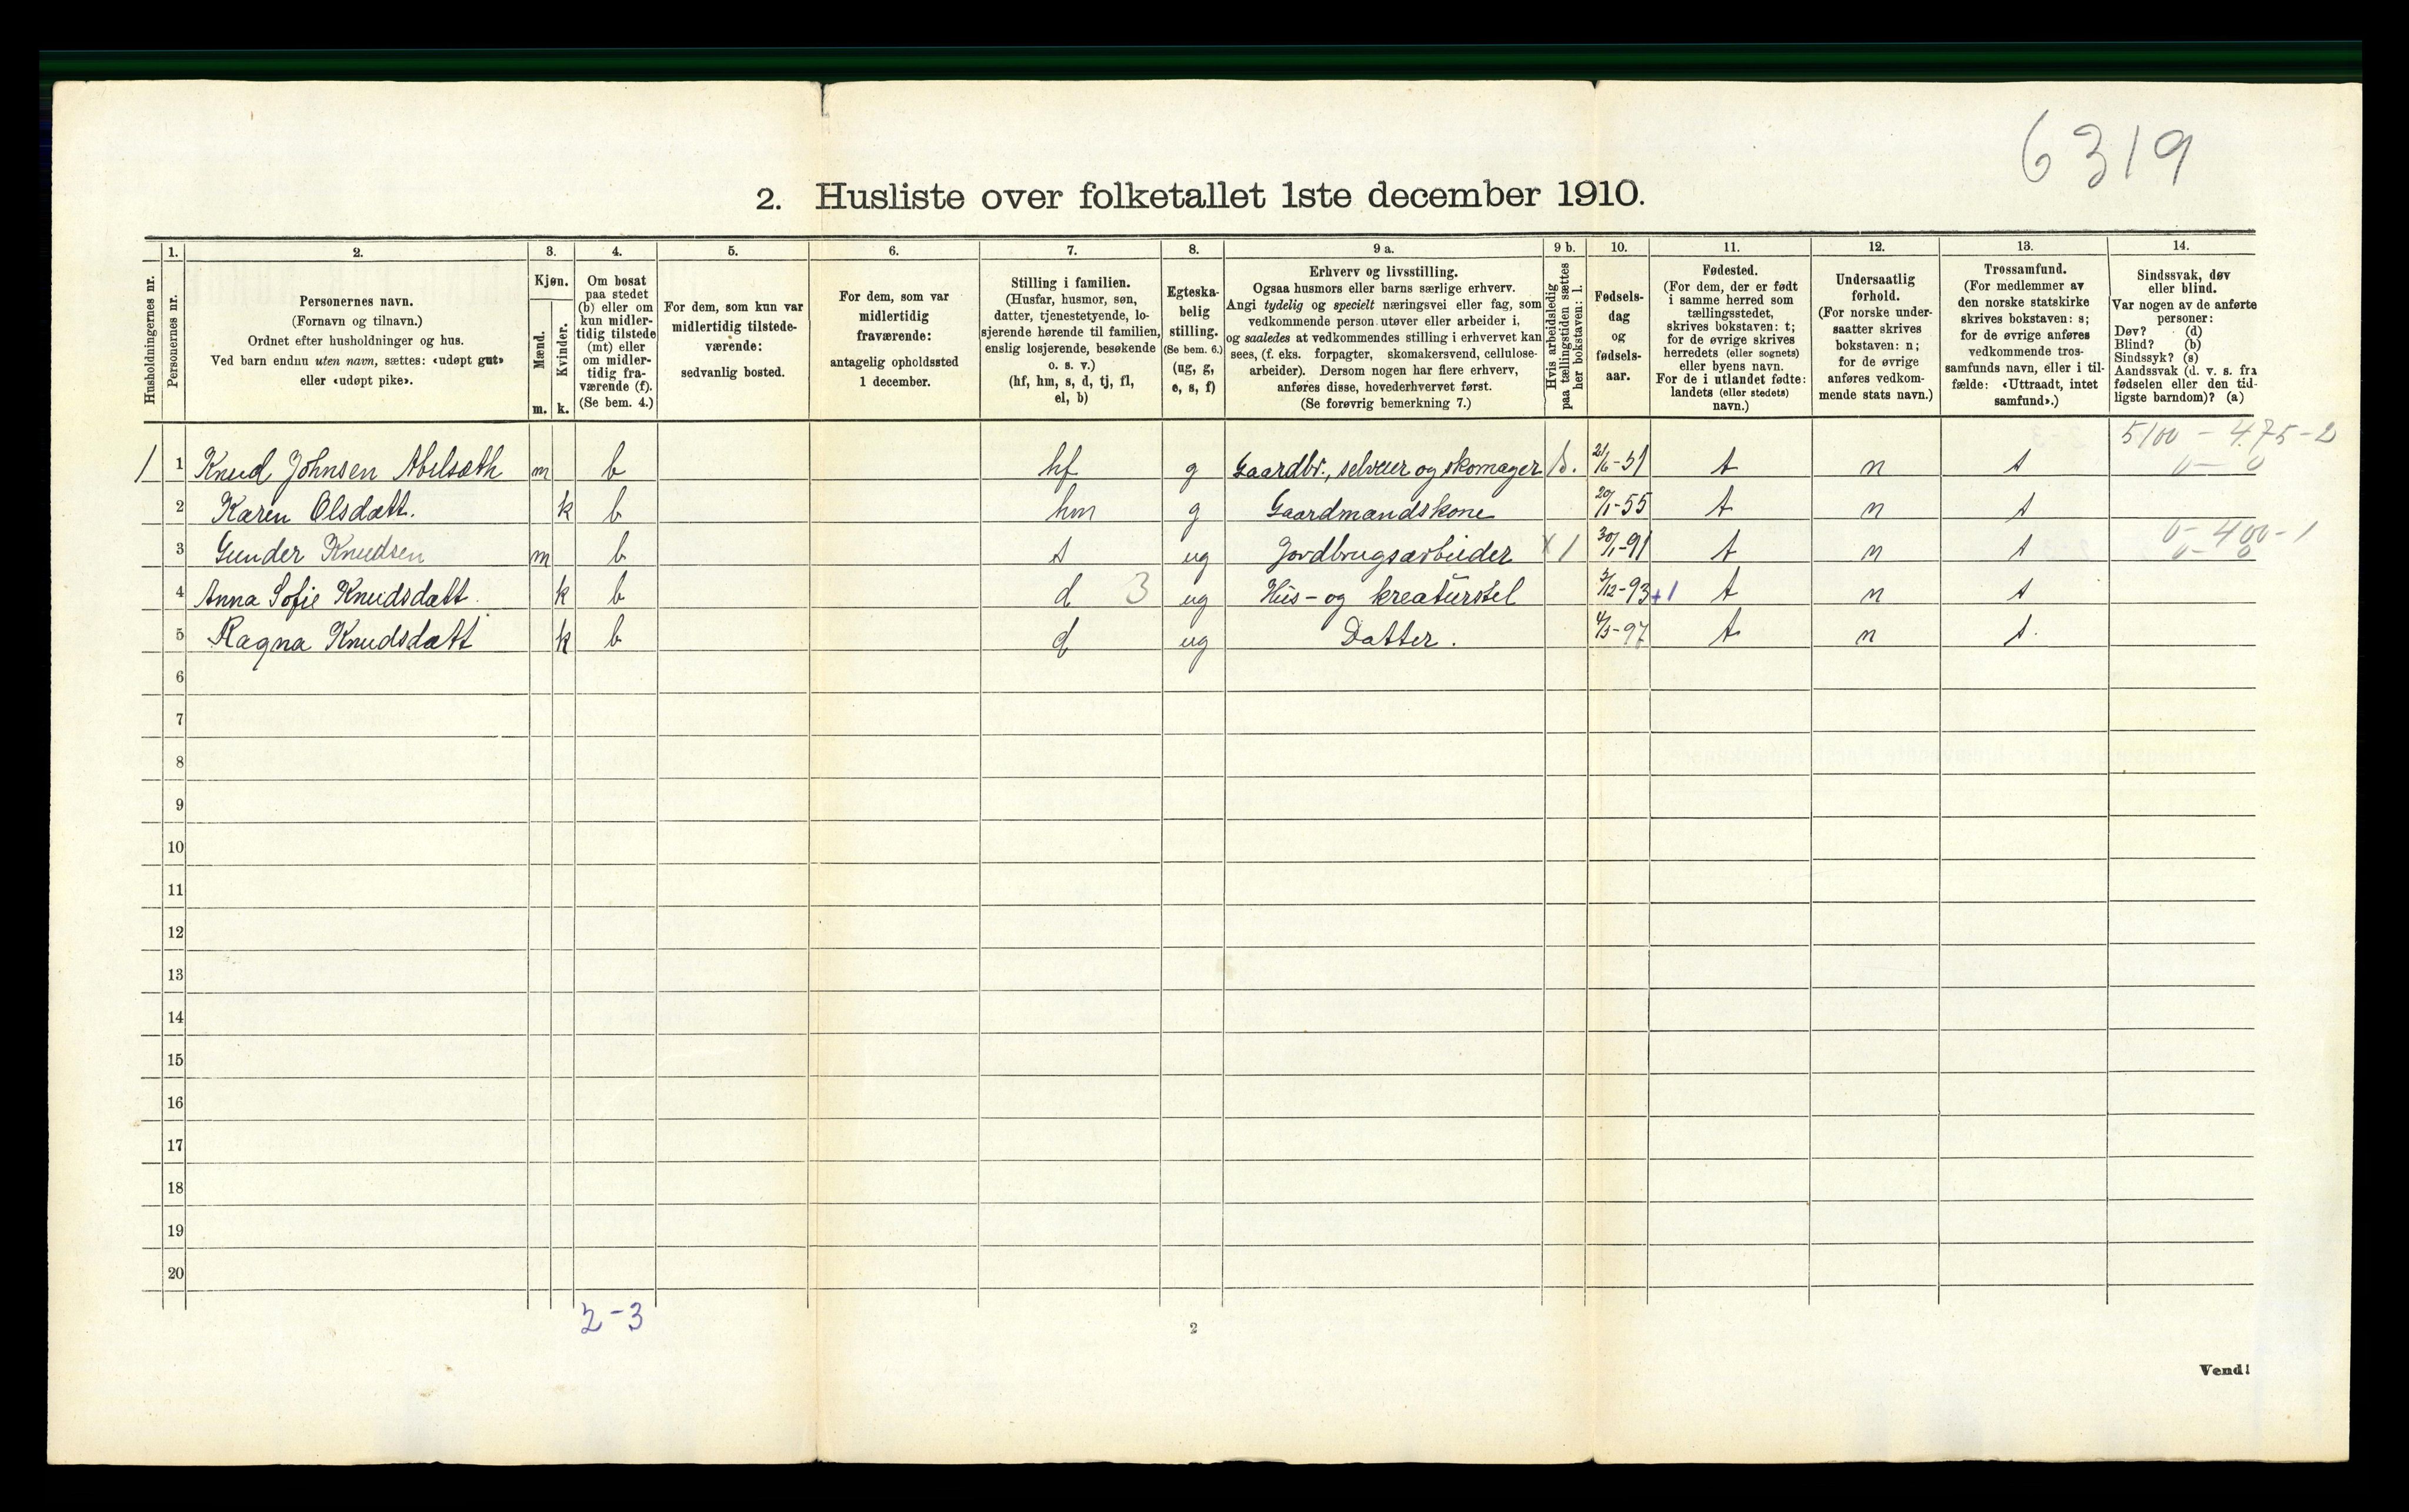 6319
2. Husliste over folketallet 1ste december 1910.
Husholdningernes nr.
1.
Personernes nr.
2.
Personernes navn.
(Fornavn og tilnavn.)
Ordnet efter husholdninger og hus.
Ved barn endnu uten navn, sættes: «udøpt gut»
eller «udøpt pike».
3.
Kjøn.
Mænd.
Kvinder.
m. k.
4.
Om bosat
paa stedet
(b) eller om
kun midler-
tidig tilstede
(mt) eller
om midler-
tidig fra-
værende (f).
(Se bem. 4.)
5.
For dem, som kun var
midlertidig tilstede-
værende:
sedvanlig bosted.
6.
For dem, som var
midlertidig
fraværende:
antagelig opholdssted
1 december.
7.
Stilling i familien.
(Husfar, husmor, søn,
datter, tjenestetyende, lo-
sjerende hørende til familien,
enslig losjerende, besøkende
o. s. v.)
(hf, hm, s, d, tj, fl,
el, b)
8.
Egteska-
belig
stilling.
(Se bem. 6.)
(ug, g,
e, s, f)
9 a.
Erhverv og livsstilling.
Ogsaa husmors eller barns særlige erhverv.
Angi tydelig og specielt næringsvei eller fag, som
vedkommende person utøver eller arbeider i,
og saaledes at vedkommendes stilling i erhvervet kan
sees, (f. eks. forpagter, skomakersvend, cellulose-
arbeider). Dersom nogen har flere erhverv,
anføres disse, hovederhvervet først.
(Se forøvrig bemerkning 7.)
9 b.
Hvis arbeidsledig
paa tællingstiden sættes
her bokstaven: l.
10.
Fødsels-
dag
og
fødsels-
aar.
11.
Fødested.
(For dem, der er født
i samme herred som
tællingsstedet,
skrives bokstaven: t;
for de øvrige skrives
herredets (eller sognets)
eller byens navn.
For de i utlandet fødte:
landets (eller stedets)
navn.)
12.
Undersaatlig
forhold.
(For norske under-
saatter skrives
bokstaven: n;
for de øvrige
anføres vedkom-
mende stats navn.)
13.
Trossamfund.
(For medlemmer av
den norske statskirke
skrives bokstaven: s;
for de øvrige anføres
vedkommende tros-
samfunds navn, eller i til-
fælde: «Uttraadt, intet
samfund».)
14.
Sindssvak, døv
eller blind.
Var nogen av de anførte
personer:
Døv? (d)
Blind? (b)
Sindssyk? (s)
Aandssvak (d. v. s. fra
fødselen eller den tid-
ligste barndom)? (a)
5100 - 475-2
1 1 Knud Johnsen Abelsæth m b hf g Gaardbr., selveier og skomager t n s 0 - 0
2 Karen Olsdatt. k b hm g Gaardmandskone 20/1-55 t n s
0 - 400 - 1
3 Gunder Knudsen m b s ug Jordbrugsarbeider x 1 30/1-91 t n s 0 - 0
4 Anna Sofie Knudsdatt. k b d 3 ug Hus- og kreaturstel 3/12-93 +1 t n s
5 Ragna Knudsdatt k b d ug Datter. 4/3-97 t n s.
6
7
8
9
10
11
12
13
14
15
16
17
18
19
20
2-3
2
Vend!